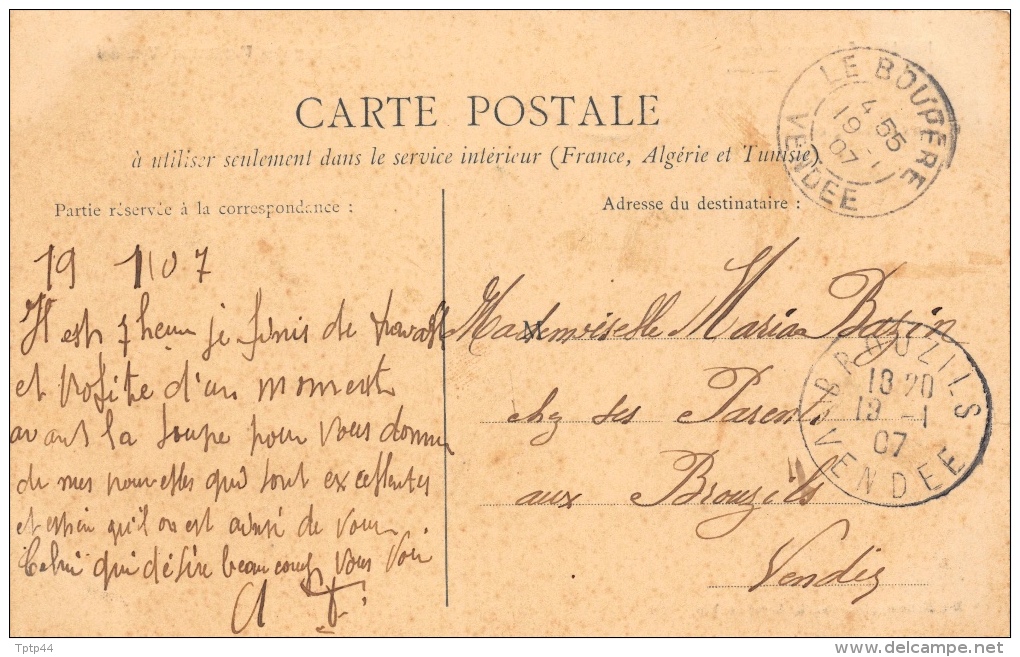 CARTE POSTALE
à utiliser seulement dans le service intérieur (France, Algérie et Tunisie).
LE BOUPERE
4 55
19 - 1
07
VENDEE
Partie réservée à la correspondance :
19 1 07
Il est 7 heur je finis de travail
et profite d'un moment
avant la soupe pour vous donner
de mes nouvelles qui sont excellentes
et qu'il en est ainsi de vous
Celui qui désire beaucoup vous voir
A
Adresse du destinataire :
M
Mademoiselle Maria Bazin
chez ses Parents
aux Brouzils
Vendée
BROUZILS
18 20
19 - 1
07
VENDEE
Tptp44
delcampe.net